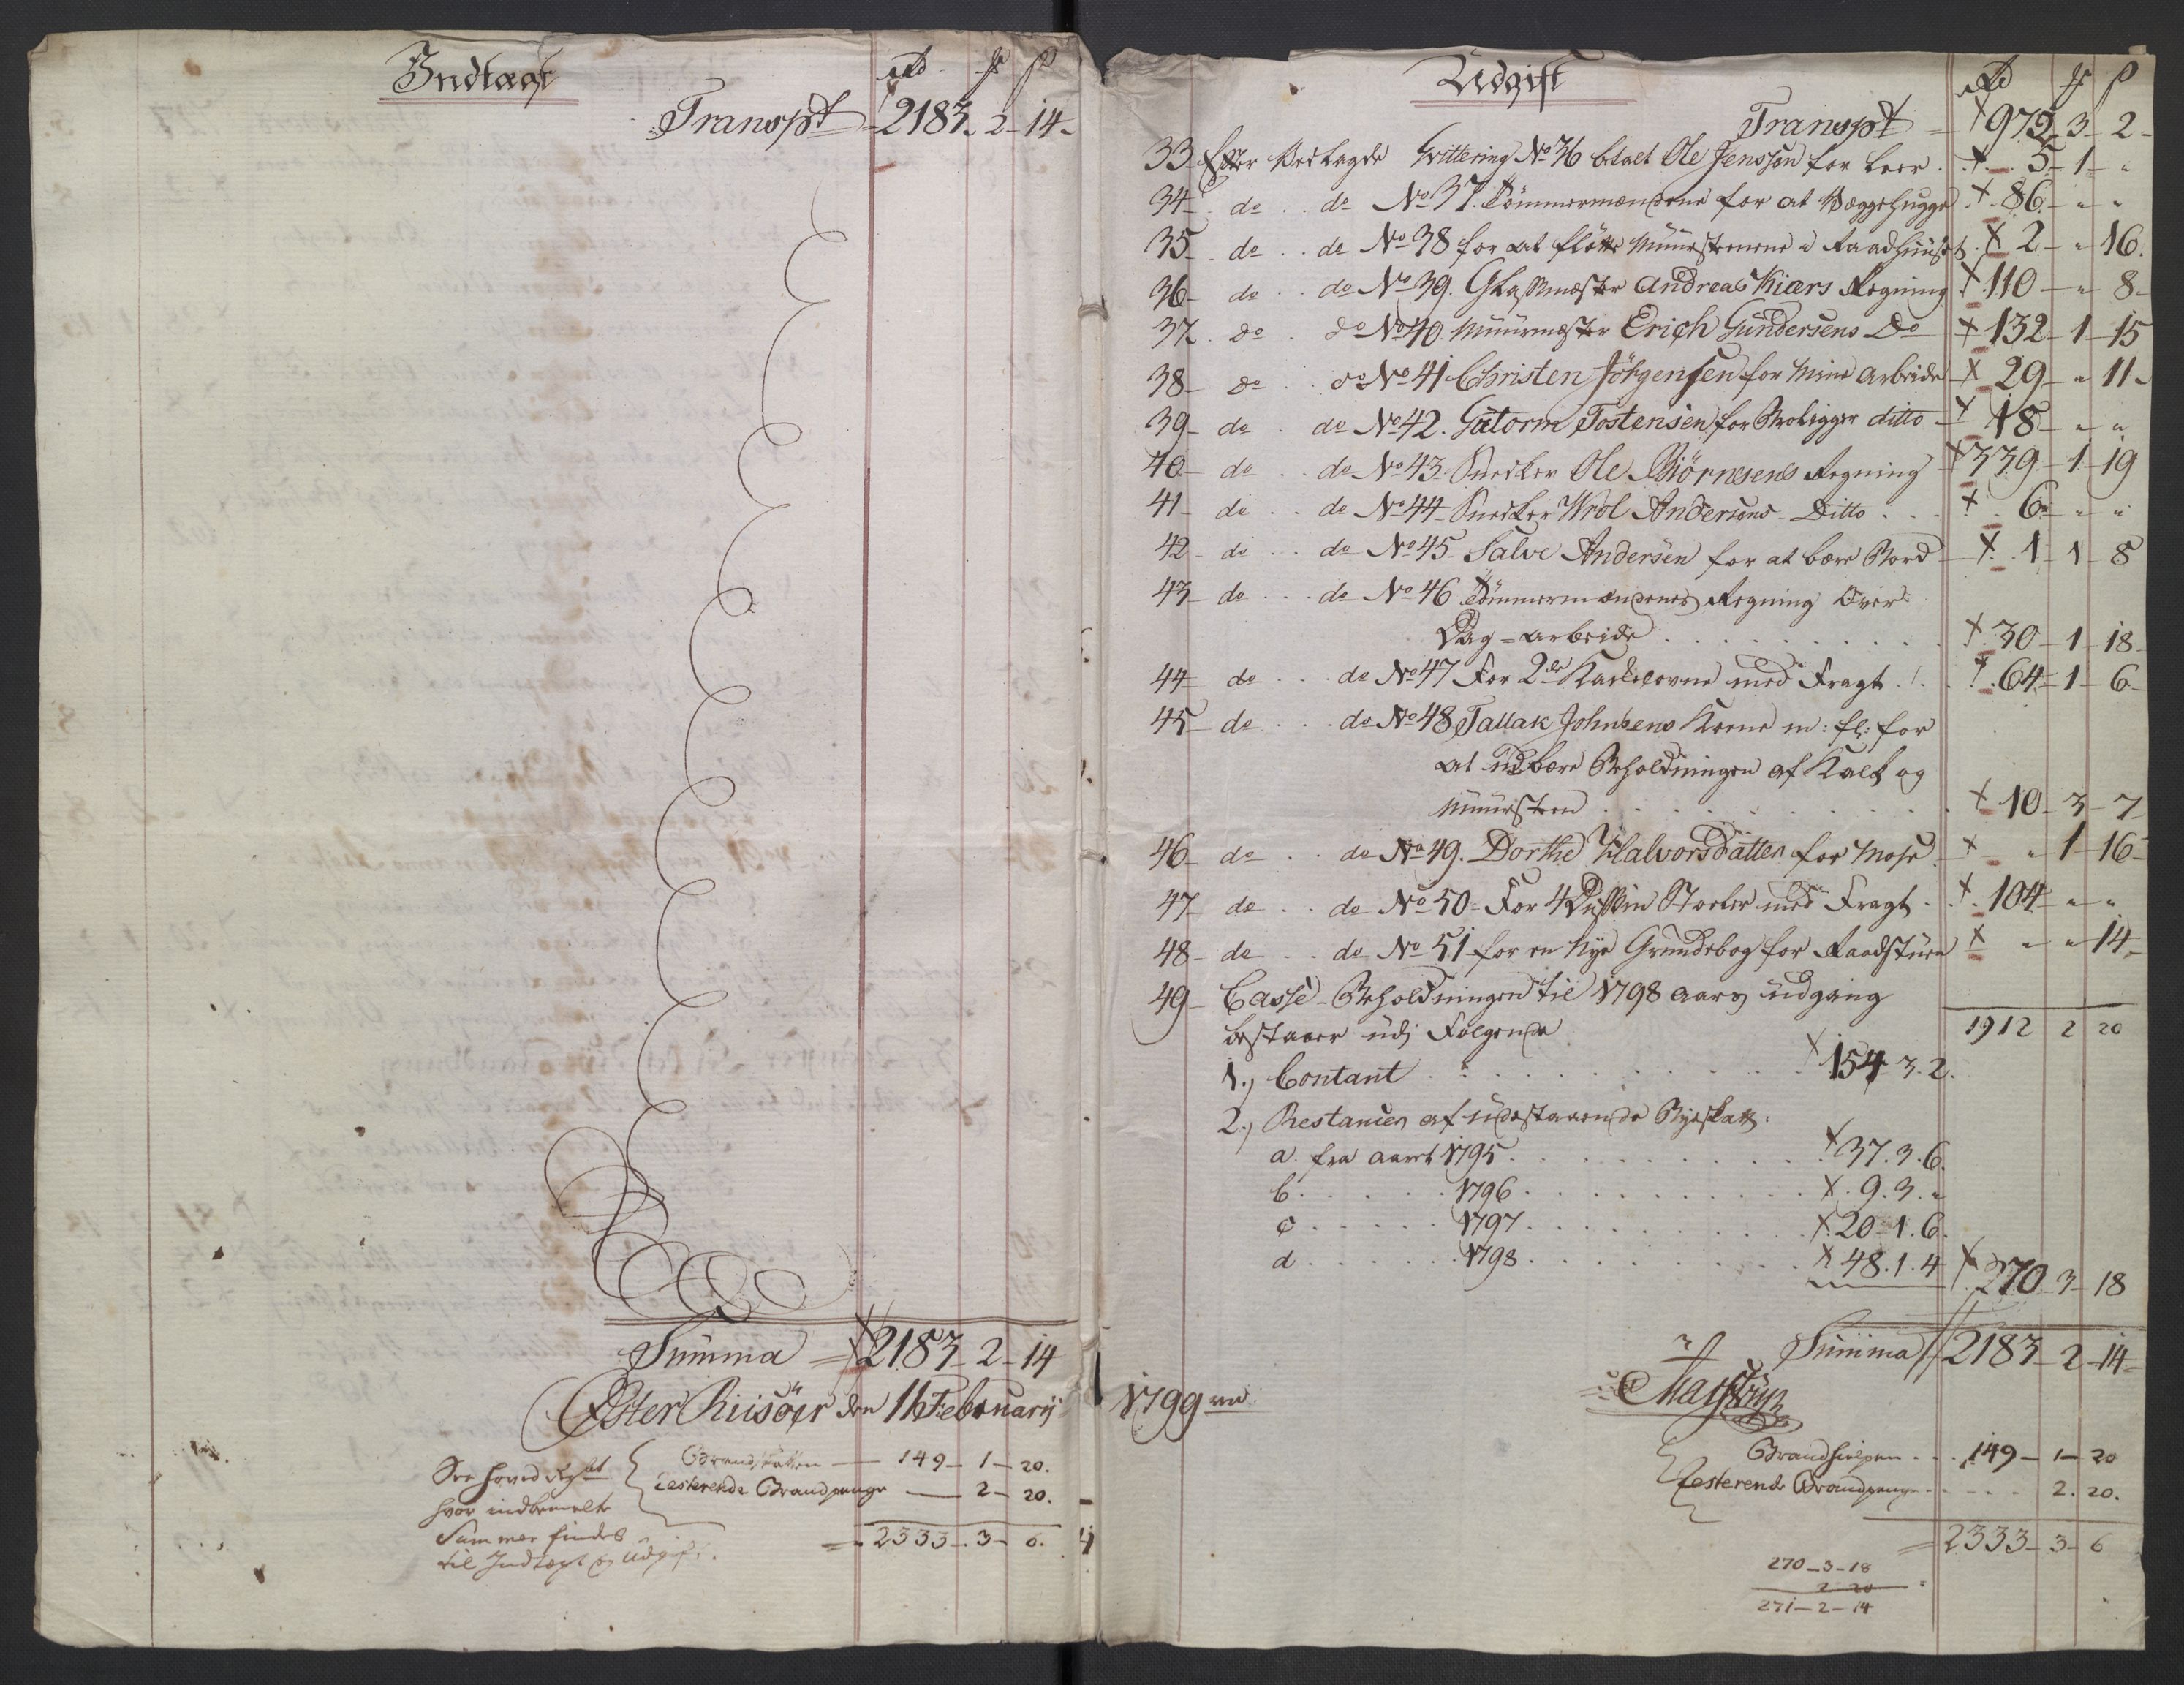 Indtægt
rd ƒ ß
Transpt 2183 - 2 - 14
Summa = 2183 - 2 - 14
Øster Riisöer den 16 Februarij
See hoved
Brandskatten — 149 - 1 - 20.
resterende Brandpenge — 2 - 20.
hvor indbemelte
Summer findes
til Indtægt og Udgift.
= 2333 - 3 - 6.
Udgift
rd ƒ ß
Transpt = 972 - 3 - 2
33 Efter Vedlagde Qvittering No 36 btalt Ole Jenssøn for Leer . 5 - 1 - "
34 - do . . do No 37. Tömmermændene for at Væggehugge 86 - " "
35 - do . . do No 38 for at flötte Muursteenene i Raadhuuset 2 - " 16.
36 - do . . do No 39. Glassmester Andreas Kiærs Regning 110 - " 8
37 - do . do No 40. Muurmester Erich Gundersens Do 132 - 1 - 15
38 - do . . do No 41 Christen Jörgensen for Mine arbeide 29 - " 11
39 - do . do No 42. Gutorm Tostensen for ditto 18 - " "
40 - do . . do No 43 - Snecker Ole Biörnsens Regning 339 - 1 - 19
41 - do . . do No 44 - Snecker Wrol Andersens Ditto . . . 6 - " "
42 - do . . . do No 45 Salve Andersen for at bære Bord 1 - 1 - 8
43 - do . . . do No 46 Tömmermændenes Regning Over
Dag-arbeide . . . 30 - 1 - 18
44 - do . . . do No 47 For 2de Kackelovne med Fragt . . 64 - 1 - 6
45 - do . . . do No 48 Tallak Johnsens Kone m: fl: for
at udbære Beholdningen af Kalk og
Muursteen . . . 10 - 3 - 7
46 - do . . do No 49. Dorthe Halvorsdatter for Mose " 1 - 16
47 - do . . do No 50 - For 4 Dussin Stoeler med Fragt . 104 - " "
48 - do . . do No 51 for en Nye Grundebog for Raadstuen " " 14
49 - Casse-Beholdningen til 1798 Aars udgang
1912 2 20
bestaaer udj Følgende
1., Contant . . . 154 3. 2.
2., Restancer af udestaaende Byeskatt.
a. fra Aaret 1795 . . . 37. 3. 6.
b . . . 1796 . . . 9. 3. "
c . . . 1797 . . . 20 - 1. 6.
d . . . 1798 . . . 48. 1. 4 270 3 - 18
Summa 2183 - 2 - 14
1799
Brandhielpen . . . 149 - 1 - 20
resterende Brandpenge . . . 2. 20.
= 2333 - 3 - 6
270 - 3 - 18
2 20
271 - 2 - 14